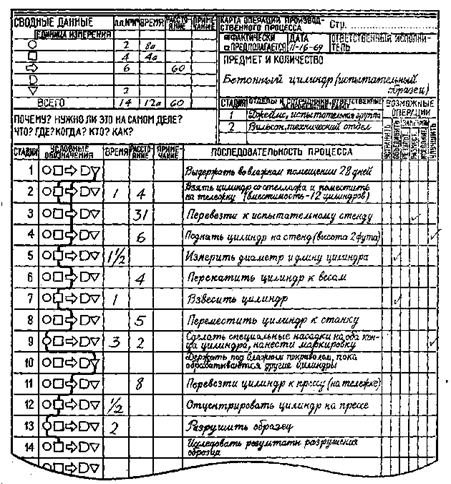 СВОДНЫЕ ДАННЫЕ
ВРЕМЯ
РАССТО-
ЯНИЕ
ПРИМЕ-
ЧАНИЕ
ЕДИНИЦА ИЗМЕРЕНИЯ
2
4
6 60
2
ВСЕГО 14 60
КАРТА ОПЕРАЦИЙ ПРОИЗВОД-
СТВЕННОГО ПРОЦЕССА Стр.
ФАКТИЧЕСКИ ДАТА ОТВЕТСТВЕННЫЙ ИСПОЛНИ-
ПРЕДПОЛАГАЕТСЯ 11-16-69 ТЕЛЬ
ПРЕДМЕТ И КОЛИЧЕСТВО
Бетонный цилиндр (испытательный
образец)
ПОЧЕМУ? НУЖНО ЛИ ЭТО НА САМОМ ДЕЛЕ?
ЧТО? ГДЕ? КОГДА? КТО? КАК?
СТАДИЯ ОТДЕЛЫ И СОТРУДНИКИ, ОТВЕТСТВЕННЫЕ
1 Джеймс, испытательная группа
2 Вильсон, технический отдел
ВОЗМОЖНЫЕ
ОПЕРАЦИИ
СТАДИЯ УСЛОВНЫЕ ОБОЗНАЧЕНИЯ ВРЕМЯ РАССТО-ЯНИЕ ПРИМЕ-ЧАНИЕ ПОСЛЕДОВАТЕЛЬНОСТЬ ПРОЦЕССА
1 Выдержать во влажном помещении 28 дней
2 1 4 Взять цилиндр со стеллажа и поместить
на тележку (вместимость - 12 цилиндров)
3 31 Перевезти к испытательному стенду
4 6 Поднять цилиндр на стенд (высота 2 фута)
5 1 1/2 Измерить диаметр и длину цилиндра
6 4 Перекатить цилиндр к весам
7 1 Взвесить цилиндр
8 5 Переместить цилиндр к станку
9 3 2 Сделать специальные насадки на оба кон-
ца цилиндра, нанести маркировку
10 Держать под влажным покрывалом, пока
обрабатываются другие цилиндры
11 8 Перевезти цилиндр к прессу (на тележке)
12 1/2 Отцентрировать цилиндр на прессе
13 2 Разрушить образец
14 Исследовать результаты разрушения
образца